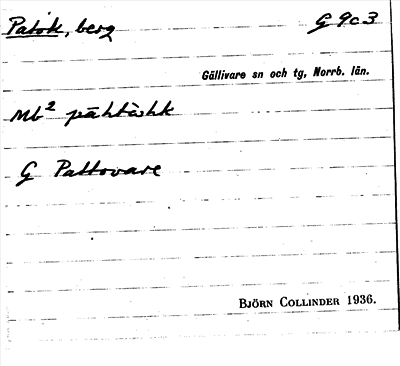 Patok, berg G 9c3
Gällivare sn och tg, Norrb. län.
Mb² pāhtåhk
G Pattovare
BJÖRN COLLINDER 1936.